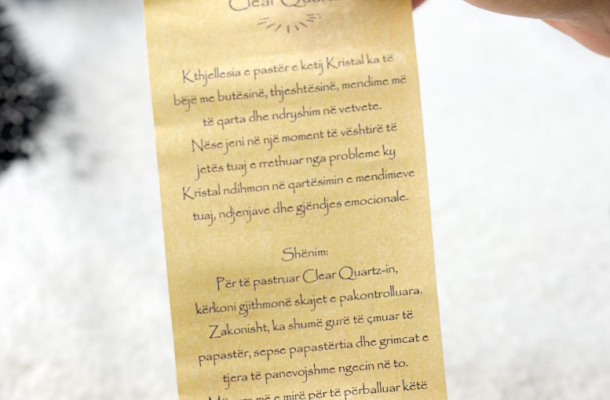 Clear Quartz
Kthjellesia e pastër e ketij Kristal ka të
bëjë me butësinë, thjeshtësinë, mendime më
të qarta dhe ndryshim në vetvete.
Nëse jeni në një moment të vështirë të
jetës tuaj e rrethuar nga probleme ky
Kristal ndihmon në qartësimin e mendimeve
tuaj, ndjenjave dhe gjëndjes emocionale.
Shënim:
Për të pastruar Clear Quartz-in,
kërkoni gjithmonë skajet e pakontrolluara.
Zakonisht, ka shumë gurë të çmuar të
papastër, sepse papastërtia dhe grimcat e
tjera të panevojshme ngecin në to.
më e mirë për të përballuar këtë